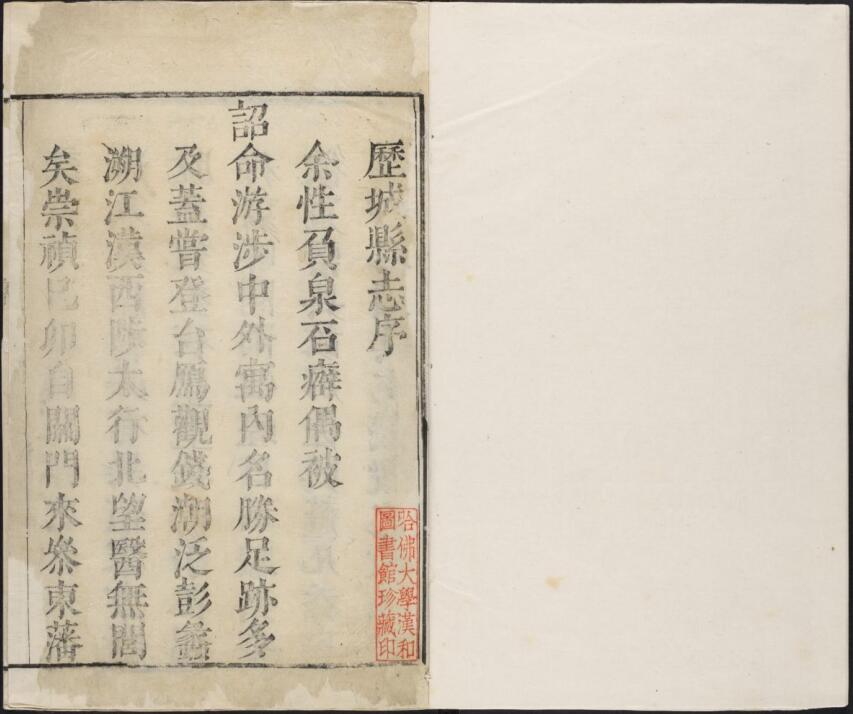 歷城縣志序
余性負泉石癖偶被
詔命游涉中外寓內名勝足跡多
及蓋嘗登台鴈觀錢潮泛彭蠡
溯江漢西陟太行北望醫無閭
矣崇禎己卯自關門來叅東藩
哈佛大學漢和
圖書館珍藏印